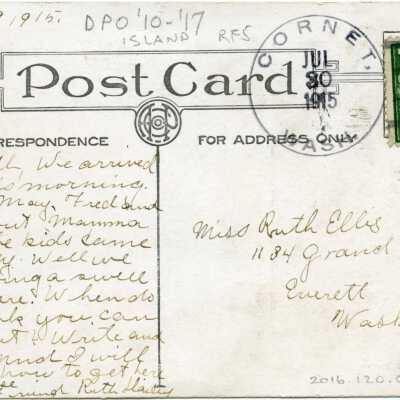 1915.
DPO '10-'17
ISLAND RFS
CORNET.
JUL
30
1915
WASH
Post Card
RESPONDENCE
FOR ADDRESS ONLY
We arrived
morning.
May, Fred and
Mamma
kids came
Well we
ing a swell
When do
you can
Write and
I will
how to get here
Ruth
Miss Ruth Ellis
1134 Grand
Everett
Wash
2016.120.